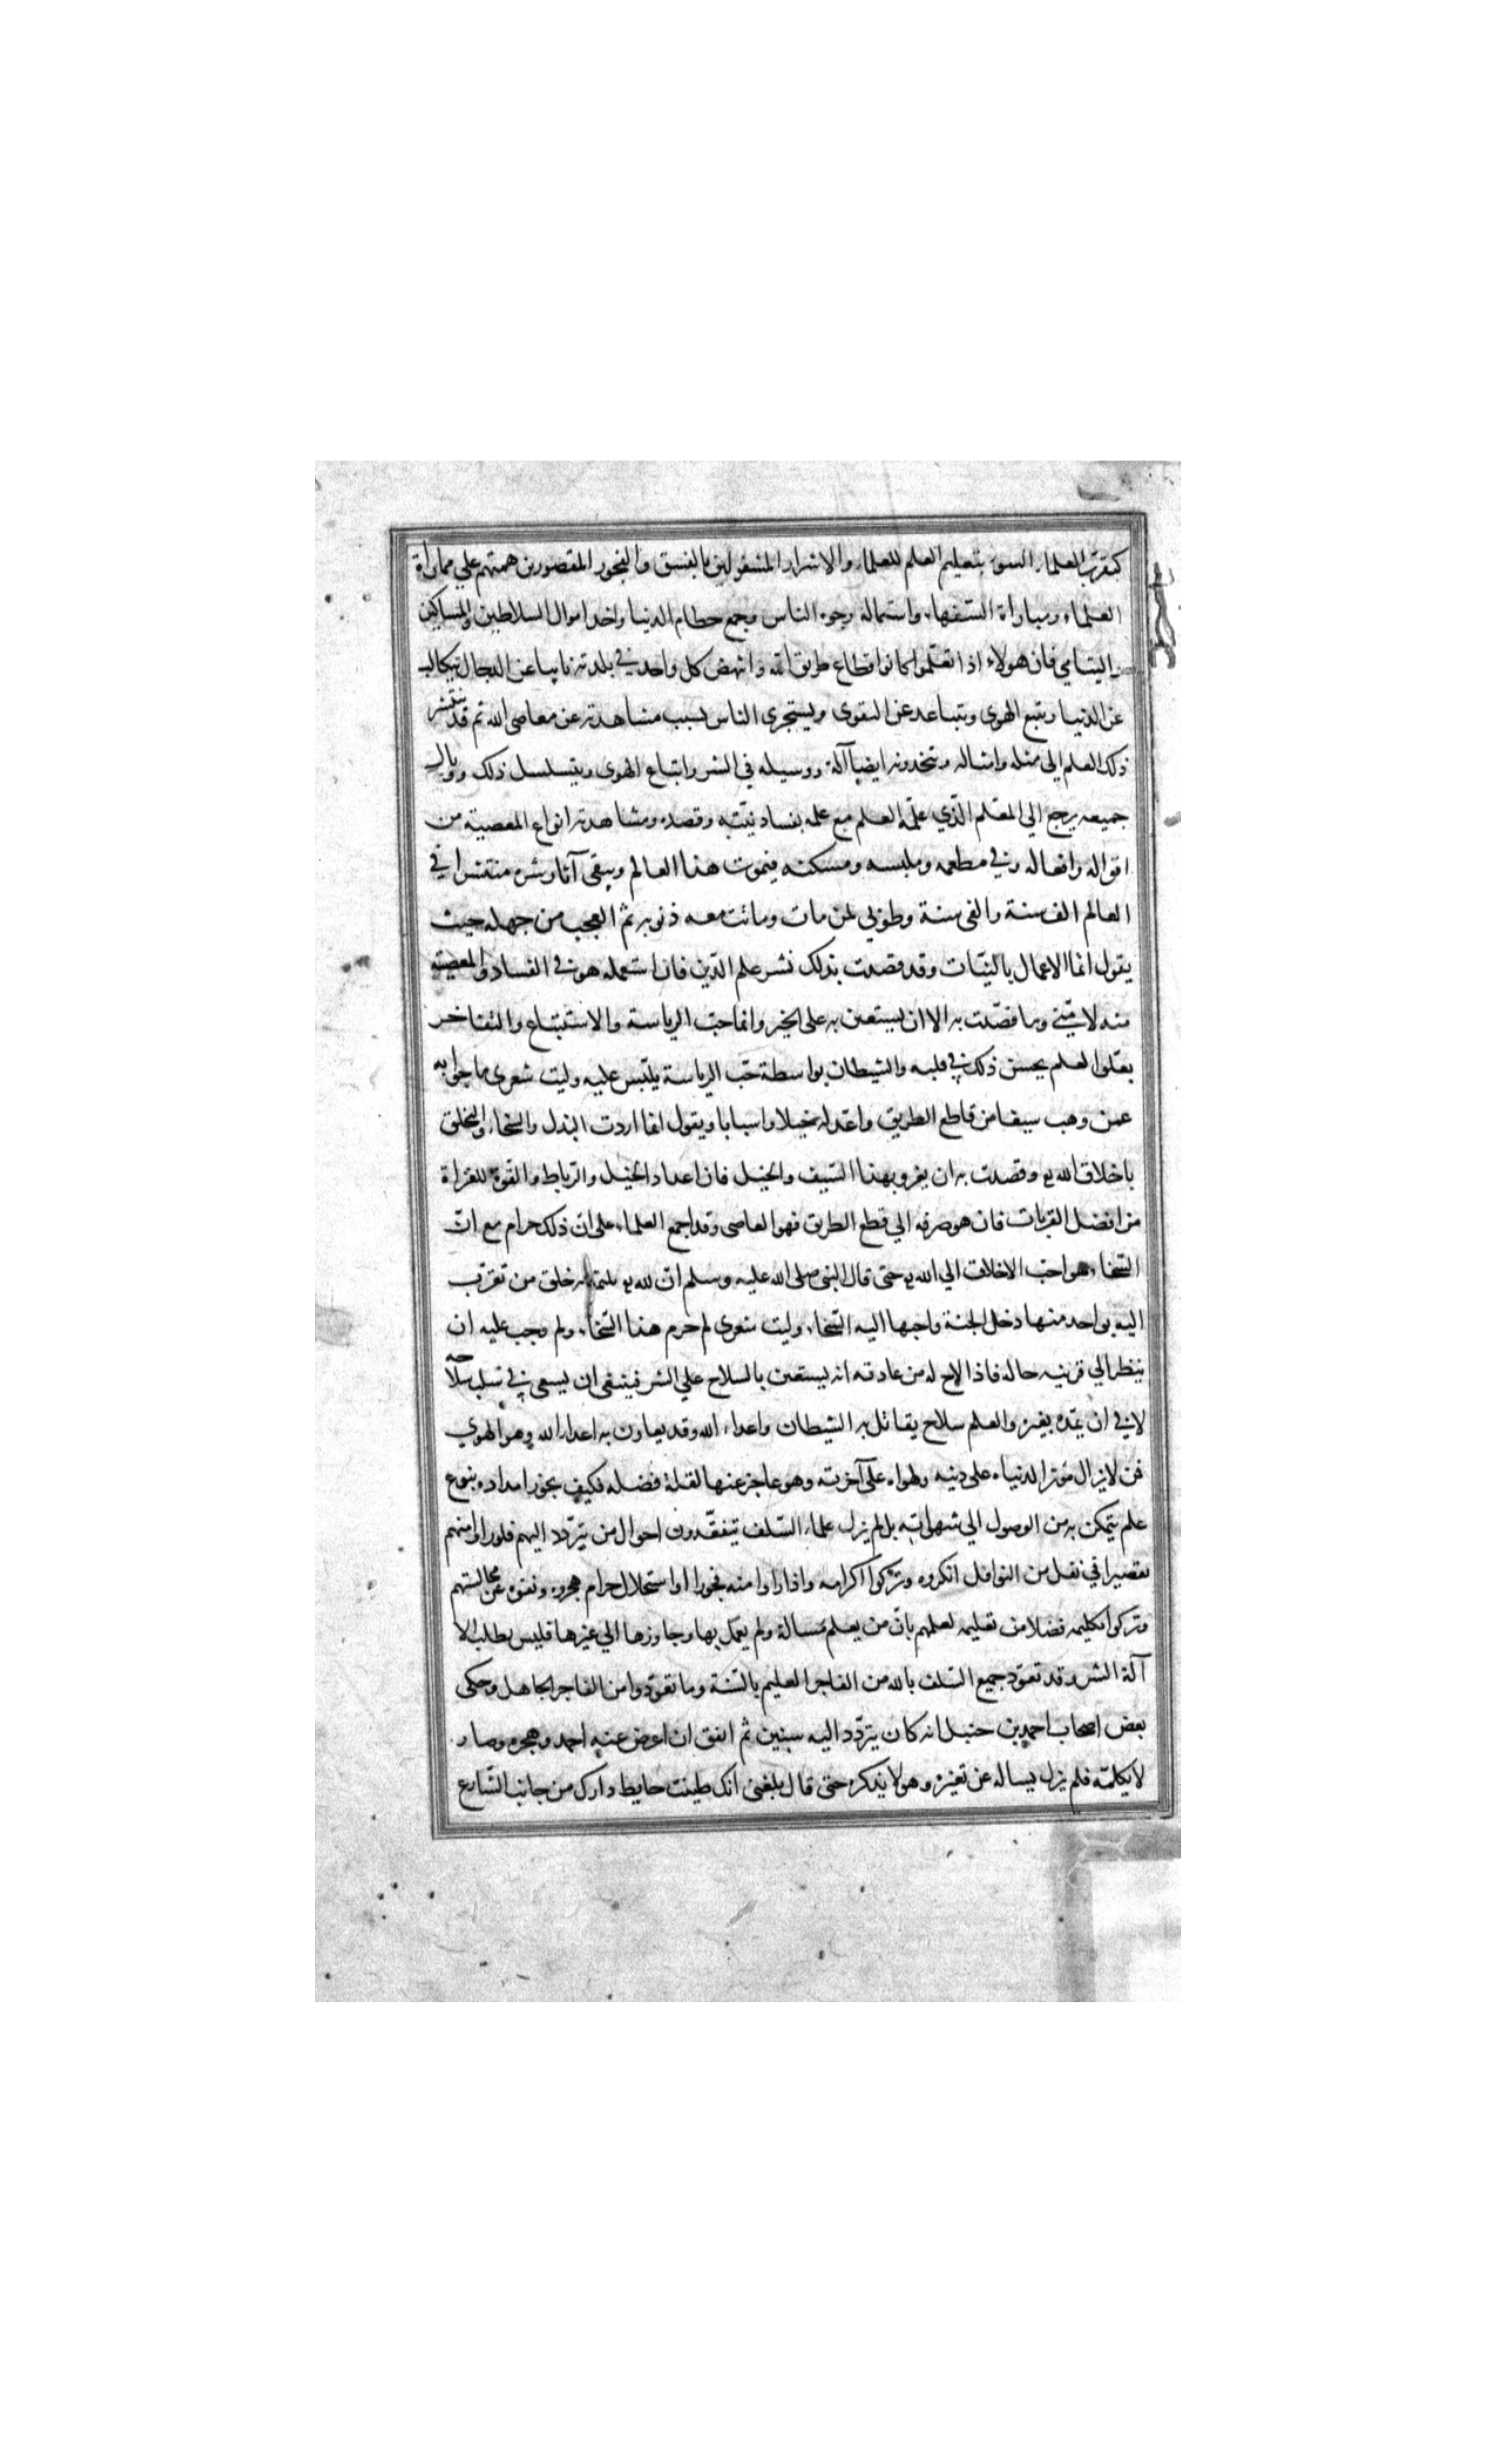 كتقرب العلماء السوء بتعليم العلم للعلماء والاشرار المشغولين بالفسق والفجور المقصورين همتهم علي مماراة
العلماء ومباراة السفهاء واستمالة وجوه الناس وجمع حطام الدنيا واخذ اموال السلاطين والمساكين
واليتامي فان هولاء اذا تعلموا كانوا قطاع طريق الله وانهض كل واحد في بلدته نايبا عن الدجال يتكالب
عن الدنيا ويتبع الهوى ويتباعد عن التقوى ويستجرى الناس بسبب مشاهدته عن معاصى الله ثم قد ينتشر
ذلك العلم الى مثله وامثاله ويتخذونه ايضا آلة ووسيله في الشر واتباع الهوى ويتسلسل ذلك ووبال
جميعه يرجع الي المعلم الذي علمه العلم مع علمه بفساد نيته وقصده ومشاهدته انواع المعصية من
اقواله وافعاله وفي مطعمه وملبسه ومسكنه فيموت هذا العالم ويبقى آثار شره منتشرا في
العالم الف سنة والفى سنة وطوبي لمن مات وماتت معه ذنوبه ثم العجب من جهله حيث
يقول انما الاعمال بالنيات وقد قصدت بذلك نشر علم الدين فان استعمله هو في الفساد والمعصية
منه لا مني وما قصدت به الا ان يستعين به على الخير وانما حب الرياسة والاستتباع والتفاخر
بعلو العلم يحسن ذلك في قلبه والشيطان بواسطة حب الرياسة يلبس عليه وليت شعرى ما جوابه
عمن وهب سيفا من قاطع الطريق واعد له خيلا واسبابا ويقول انما اردت البذل والسخاء والتخلق
باخلاق الله وقصدت به ان يغزو بهذا السيف والخيل فان اعداد الخيل والرباط والقوة للغزاة
من افضل القربات فان هو صرفه الي قطع الطريق فهو العاصى وقد اجمع العلماء على ان ذلك حرام مع ان
السخاء هو احب الاخلاق الي الله حتى قال النبى صلى الله عليه وسلم ان لله ثلثمائه خلق من تقرب
اليه بواحد منها دخل الجنة واحبها اليه السخاء وليت شعرى لم حرم هذا السخاء ولم وجب عليه ان
ينظر الي قرينه حاله فاذا لاح له من عادته انه يستعين بالسلاح علي الشر فينبغى ان يسعى في سلب سلاحه
لا في ان يمده بغيره والعلم سلاح يقاتل به الشيطان واعداء الله وقد يعاون به اعداء الله وهو الهوي
فمن لا يزال مؤثرا لدنياه على دينه ولهواه على آخرته وهو عاجز عنها لقلة فضله فكيف يجوز امداده بنوع
علم يتمكن به من الوصول الي شهواته بل لم يزل علماء السلف يتفقدون احوال من يتردد اليهم فلو راوا منهم
تقصيرا في نفل من النوافل انكروه وتركوا اكرامه واذا راوا منه فجورا او استحلال حرام هجروه ونفوه عن مجالستهم
وتركوا تكليمه فضلا من تعليمه لعلمهم بان من يعلم مسالة ولم يعمل بها وجاوزها الي غيرها فليس يطلب الا
آلة الشر وقد تعوذ جميع السلف بالله من الفاجر العليم بالسنة وما تعوذوا من الفاجر الجاهل وحكى
بعض اصحاب احمد بن حنبل انه كان يتردد اليه سنين ثم اتفق ان اعرض عنه احمد وهجره وصار
لا يكلمه فلم يزل يساله عن تغيره وهو لا يذكره حتى قال بلغنى انك طينت حايط دارك من جانب الشارع